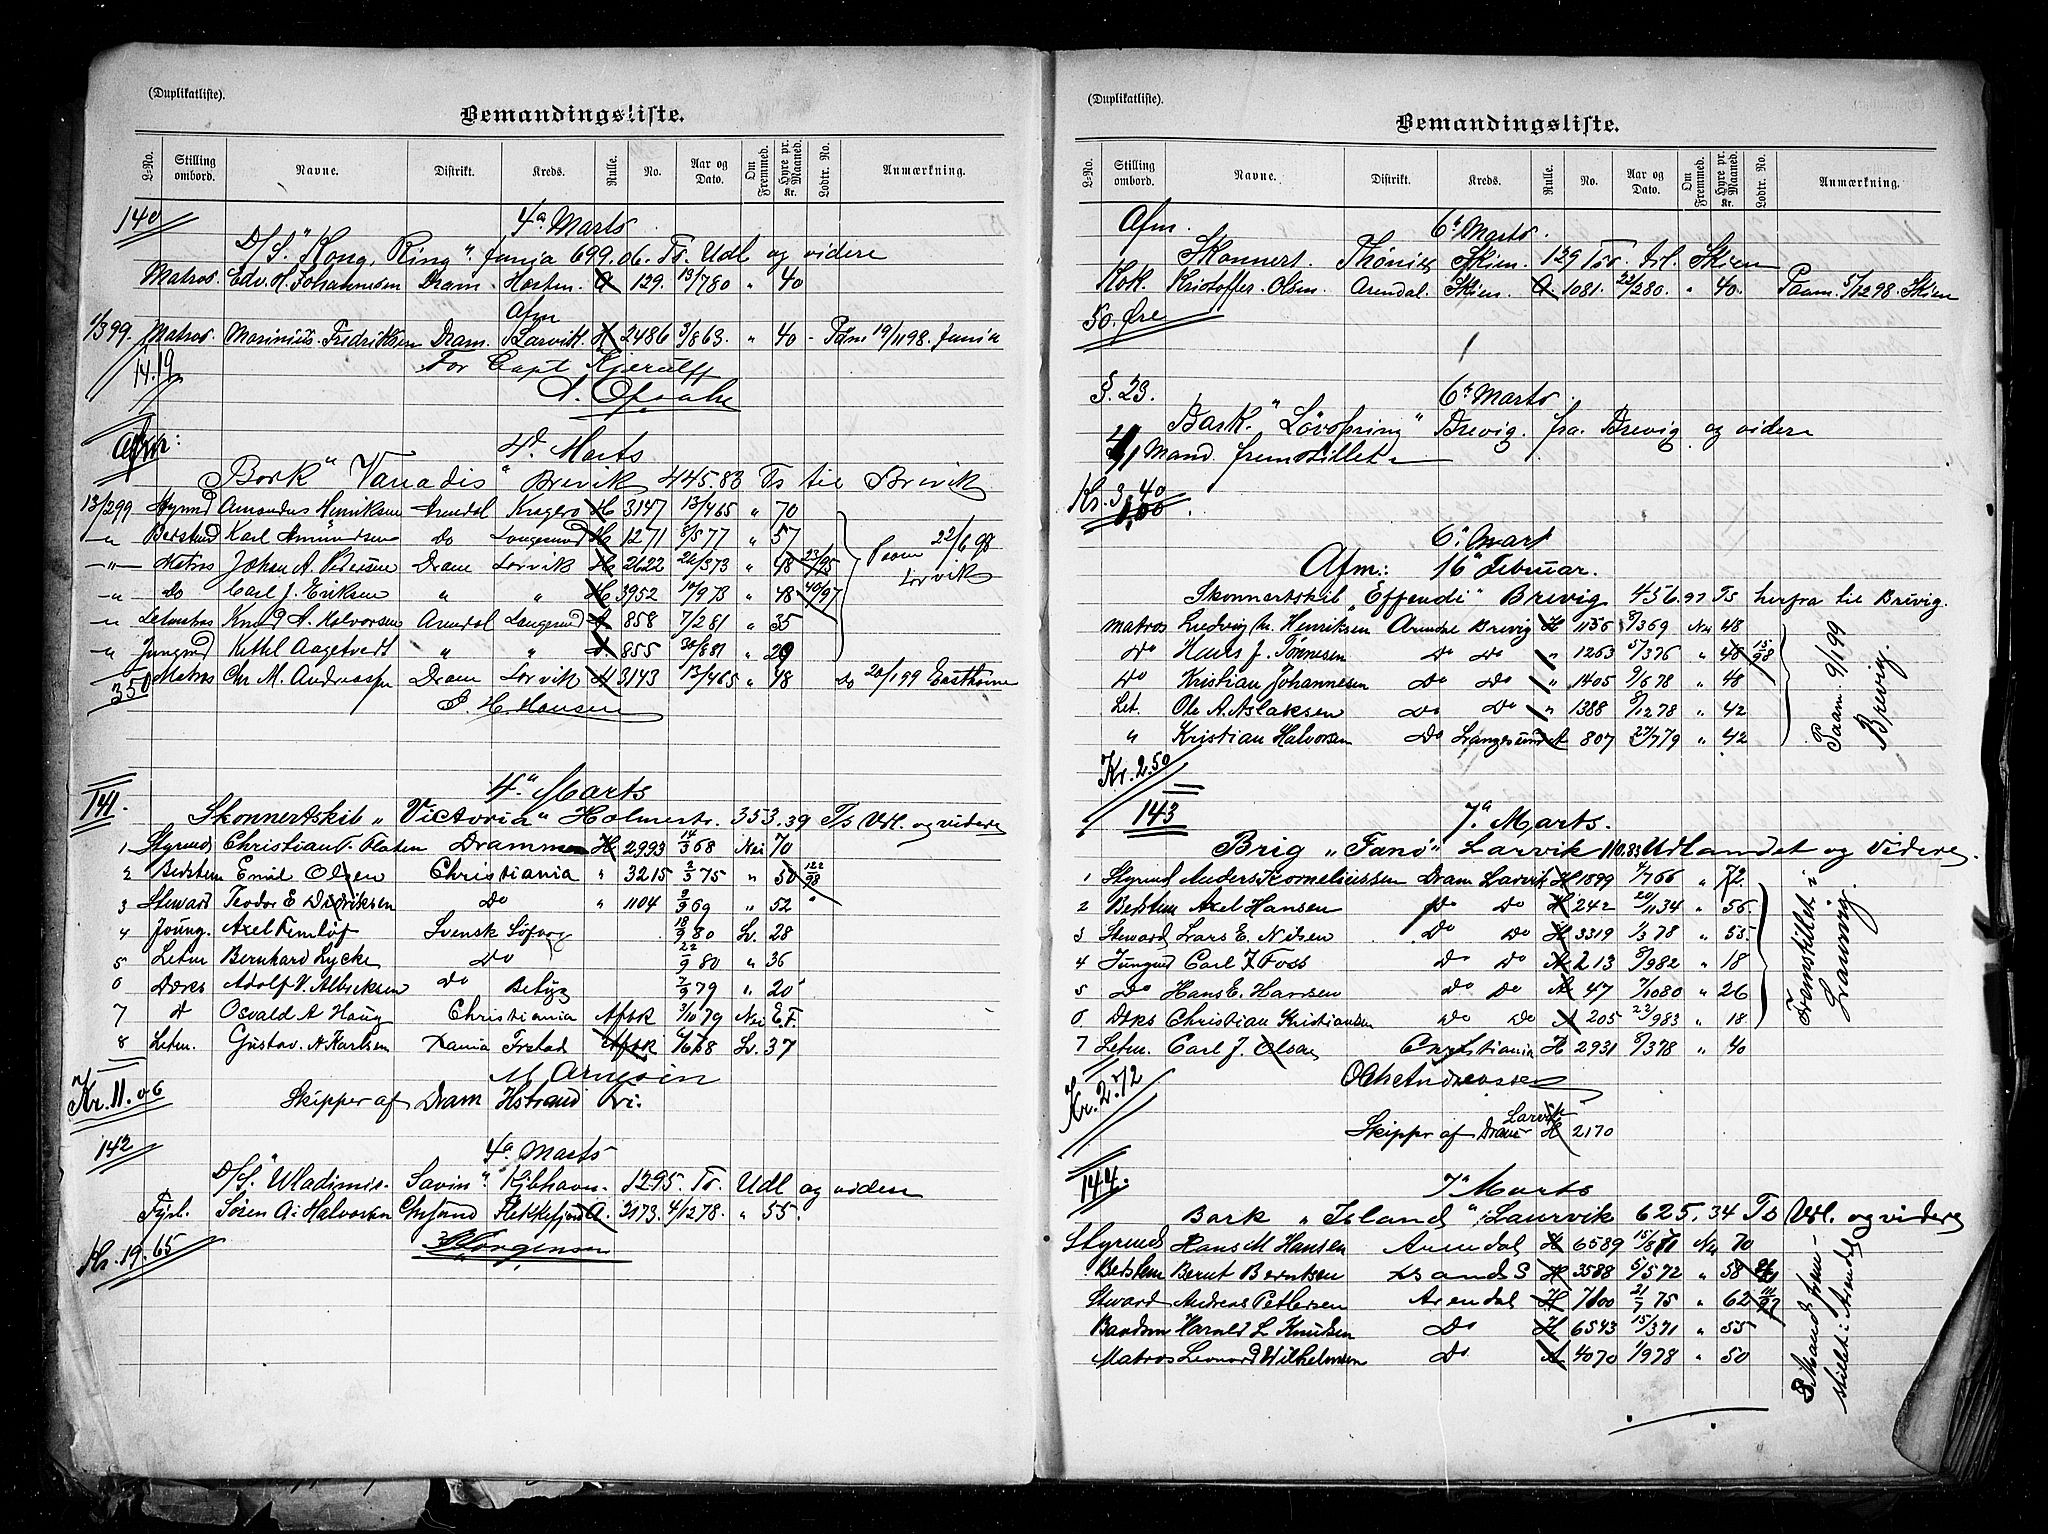 (Duplikatliste).
Bemandingsliste.
L-No. Stilling ombord. Navne. Distrikt. Kreds. Rulle. No. Aar og Dato. Om Fremmed. Hyre pr. Maaned. Kr. Lodtr. No. Anmærkning.
140 4a Marts
D/S. "Kong. Ring" Junia 699.06. Ts. Udl og videre
Matros. Edv. H. Johannesen Dram. Horten. A 129. 13/780 " 40
Afm
1/3 99. Matros. Marinius. Fredriksen Dram. Larvik. H 2486 3/863. " 40 -
14.19 For Capt Kjerulff
Afm: 4d Marts
Bark "Vanadis" Brevik 445.83 Ts til Brevik
13/299 Styrmd Amandus Henriksen Arendal Kragerø H 3147 13/465 " 70
-"- Bedstmd Karl Amundsen do Langesund H 1271 8/577 " 57
-"- Matros Johan A. Pedersen Dram Larvik H 2622 26/373 " 48 23/95 Paam 22/6 98 Larvik
-"- Do Carl J. Eriksen " " H 3952 10/973 " 48 40/97
-"- Letmatros Knud A. Halvorsen Arendal Langesund A 858 7/281 " 35
-"- Jungmd Kittel Aagetvedt " " A. 855 20/881 " 29
Matros Chr M. Andreassen Dram Larvik H 3143 13/465 " 48 do 20/199
3.50 P. H. Hansen
141. 4" Marts
Skonnertskib "Victoria" Holmestr. 353.39 Ts Udl. og videre
1 Styrmd Christian F. Floten Drammen H 2993 14/3 68 Nei 70
2 Bedstem Emil Olsen Christiania " 3215 2/3 75 " 50 122/98
3 Steward Teodor E Didriksen Do " 1104 2/9 69 " 52 "
4 Joung. Axel Femlöf Svensk Söfv 18/9 80 Sv. 28
5 Letm Bernhard Lycke Do 22/9 80 " 36
6 Dæks Adolf V. Albrektsen Do 7/9 79 " 20
7 d Osvald A Haug Christiania Afsk 3/10 79 Nei E.F.
8 Letm. Gustav. A Karlsen Xania Afsk 6/668 Sv. 37
Kr. 11.06 M Arnesen
Skipper af Dram
142 4a Marts
D/S. "Wladimir Savin". Kjbhavn. 1295. Ts. Udl og videre
Fyrb. Søren A. Halvorsen Chrsand Flekkefjord A. 2173. 4/1278. " 55.
Kr. 19.65 Jørgensen
(Duplikatliste).
Bemandingsliste.
L-No. Stilling ombord. Navne. Distrikt. Kreds. Rulle. No. Aar og Dato. Om Fremmed. Hyre pr. Maaned. Kr. Lodtr. No. Anmærkning.
Afm. 6a Marts.
Skonnert. Thønis Skien. 129 Ts. til. Skien
Kok. Kristoffer. Olsen. Arendal. Skien. A 1081. 22/280. " 40. Paam. 5/1298. Skien
50. Øre
§. 23. 6a Marts.
Bark. "Løvspring" Brevig. fra. Brevig og videre
Mand. fremstillet.
Kr. 3.40
6a Mart
Afm: 16" Februar.
Skonnertskib "Effendi" Brevig 456.97 Ts herfra til Brevig.
Matros Ludvig M. Henriksen Arendal Brevig H 1156 8/369 Nei 48
Do Hans J. Tønnesen Do Do " 1263 5/376 " 48 15/98
Do Kristian Johannesen Do Do " 1405 9/678 " 48
Let. Ole A. Aslaksen Do Do " 1388 8/1278 " 42
" Kristian Halvorsen Do Langesund A 807 27/779 " 42
Paam. 9/199 Brevig.
Kr. 2.50
143 7a Marts.
Brig "Fanø" Larvik Udlandet og videre.
1 Styrmd Anders Korneliussen Dram Larvik H 1899 4/766 " 72.
2 Bedstem Axel Hansen Do Do H 242 20/1134 " 56.
3 Steward Lars E. Nilsen Do Do H 3319 1/378 " 55.
4 Jungmd Carl F. Foss Do Do A 213 8/982 " 18
5 Do Hans E. Hansen Do Do A 47 7/1080 " 26
6 Dæks Christian Kristiansen Do Do A 205 23/983 " 18
7 Letm. Carl J. Olsen Christiania H 2931 8/378 " 40
Fremstillet i Laurvig.
Kr. 2.72 Ole Andreassen
Skipper af Dram Larvik H 2170
144. 7a Marts
Bark "Island" Laurvik 625.34 Ts Udl. og videre
Styrmd Hans M Hansen Arendal H 6589 15/871 Nei 70
Bedstem Bernt Berntsen XsandS H 3588 5/572 " 58
Steward Andreas Pettersen Arendal H 7100 21/7 75 " 62
Baadsm Harald L Knudsen Do H 6543 15/371 " 55
Matros Leonard Wilhelmsen Do A 4070 1/978 " 50
8 Mand frem-
stillet i Arendal